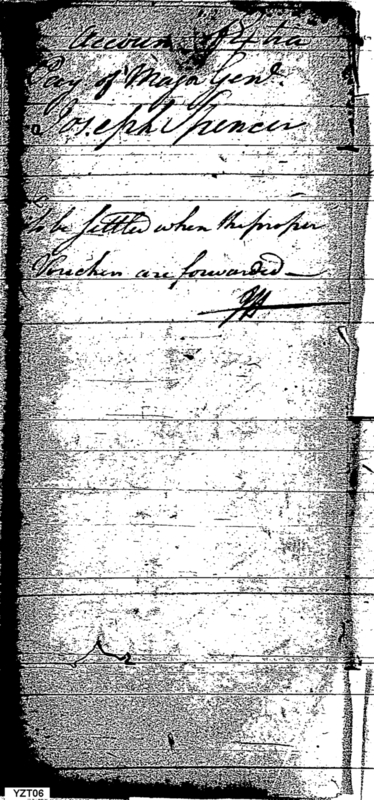 Account of the
Pay of Major Genl.
Joseph Spencer
to be Settled when the proper
Vouchers are forwarded
YZT06